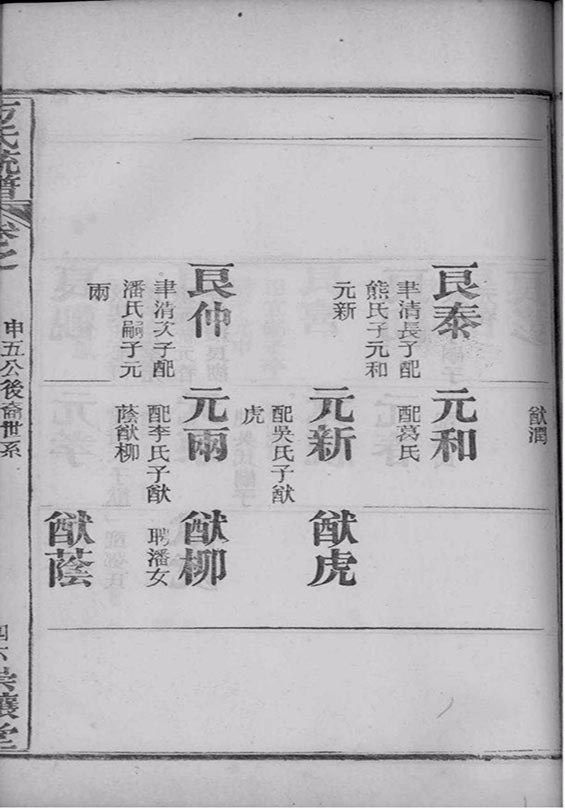 猷潤
良泰
聿清長子配
熊氏子元和
元新
元和
配葛氏
元新
配吳氏子猷
虎
猷虎
良仲
聿清次子配
潘氏嗣子元
雨
元雨
配李氏子猷
蔭猷柳
猷柳
聘潘女
猷蔭
氏統譜
卷之
申五公後裔世系
四六